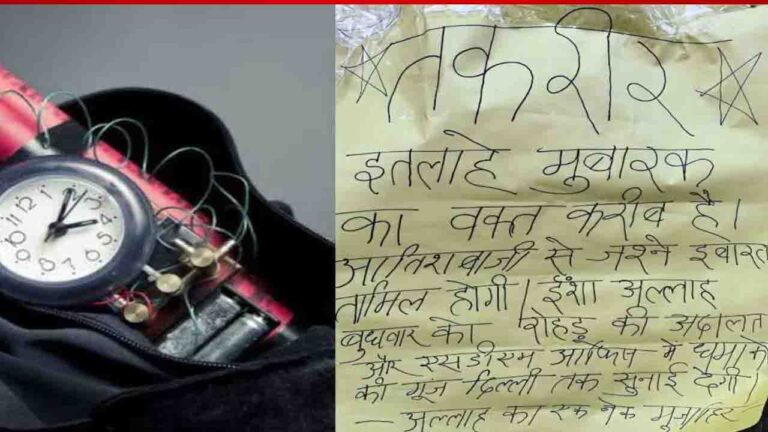 तकरीर
इतलाहे मुबारक
का वक्त करीब है।
आतिशबाजी से जश्ने इबारत
तामिल होगी। इंशा अल्लाह
बुधवार को रोहडू की अदालत
और एसडीएम आफिष में धमाके
की गूज दिल्ली तक सुनाई देगी।
— अल्लाह का एक नेक मुजाहिर